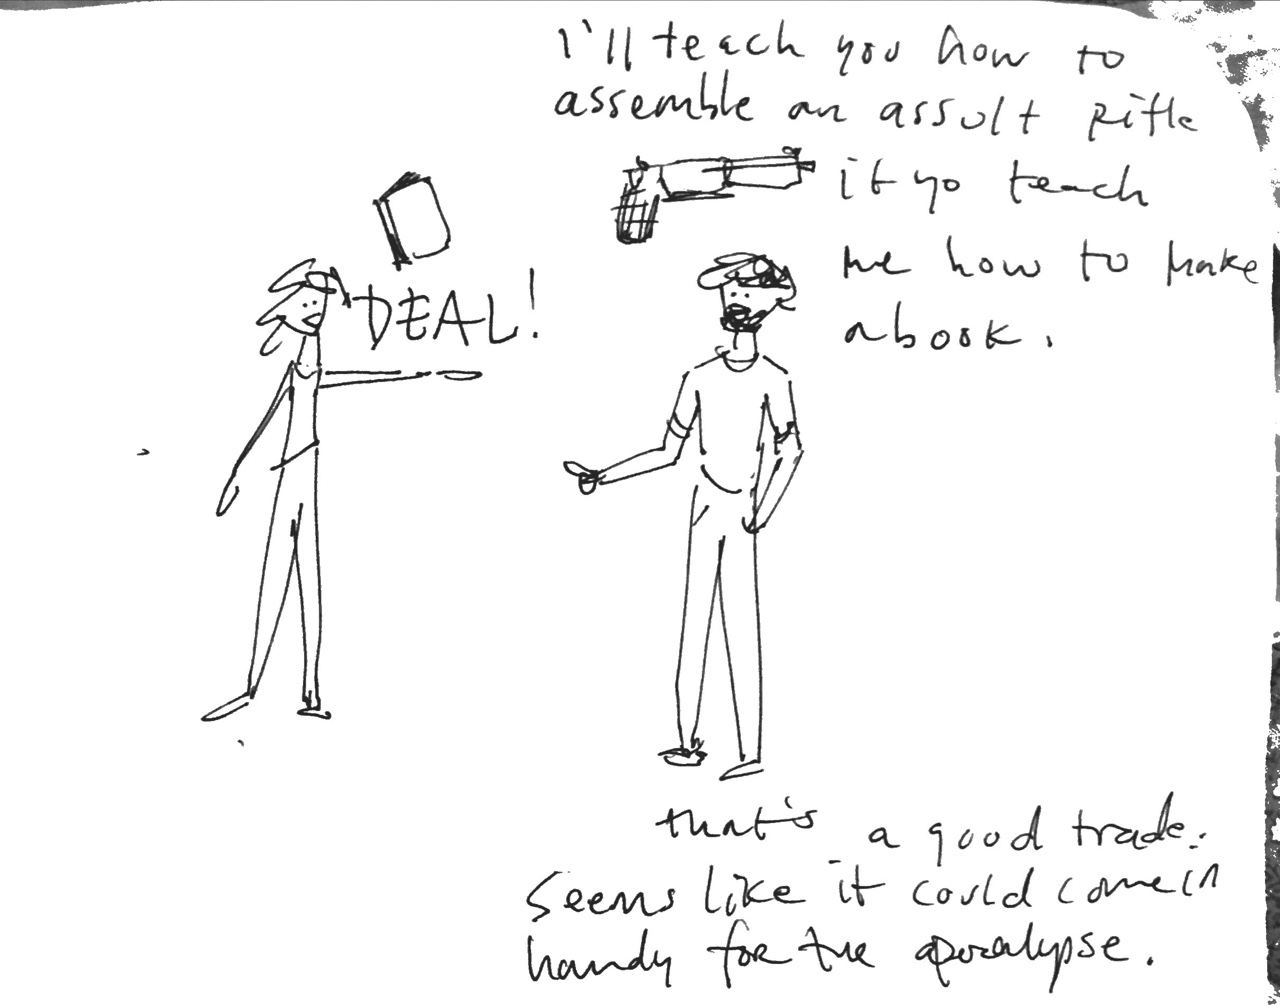 I'll teach you how to
assemble an assult rifle
if yo teach
me how to make
a book.
DEAL!
that's a good trade.
Seems like it could come in
handy for the apocalypse.